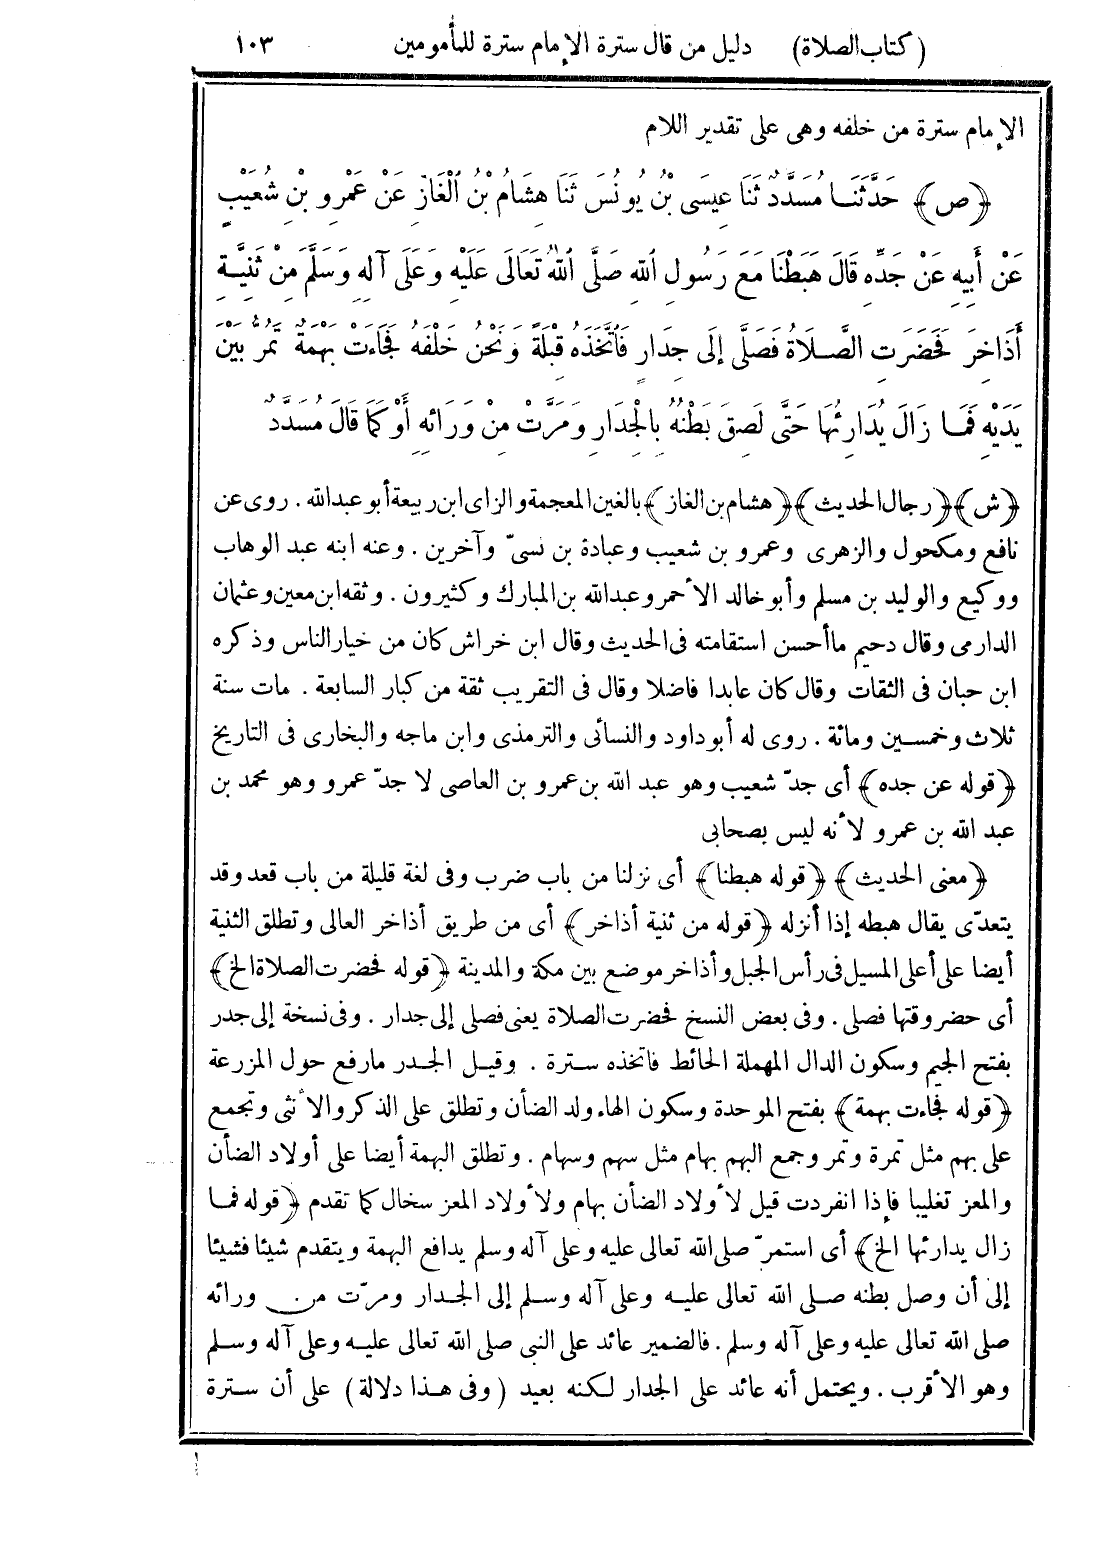 (كتاب الصلاة) دليل من قال سترة الإمام سترة للمأمومين ١٠٣
الإمام سترة من خلفه وهى على تقدير اللام
﴿ص﴾ حَدَّثَنَا مُسَدَّدٌ ثَنَا عِيسَى بْنُ يُونُسَ ثَنَا هِشَامُ بْنُ الْغَازِ عَنْ عَمْرِو بْنِ شُعَيْبٍ
عَنْ أَبِيهِ عَنْ جَدِّهِ قَالَ هَبَطْنَا مَعَ رَسُولِ اللهِ صَلَّى اللهُ تَعَالَى عَلَيْهِ وَعَلَى آلِهِ وَسَلَّمَ مِنْ ثَنِيَّةِ
أَذَاخِرَ فَحَضَرَتِ الصَّلَاةُ فَصَلَّى إِلَى جِدَارٍ فَاتَّخَذَهُ قِبْلَةً وَنَحْنُ خَلْفَهُ فَجَاءَتْ بَهْمَةٌ تَمُرُّ بَيْنَ
يَدَيْهِ فَمَا زَالَ يُدَارِئُهَا حَتَّى لَصِقَ بَطْنُهُ بِالْجِدَارِ وَمَرَّتْ مِنْ وَرَائِهِ أَوْ كَمَا قَالَ مُسَدَّدٌ
﴿ش﴾ ﴿رجال الحديث﴾ ﴿هشام بن الغاز﴾ بالغين المعجمة والزاى ابن ربيعة أبو عبدالله . روى عن
نافع ومكحول والزهرى وعمرو بن شعيب وعبادة بن نسىّ وآخرين . وعنه ابنه عبد الوهاب
ووكيع والوليد بن مسلم وأبو خالد الأحمر وعبدالله بن المبارك وكثيرون . وثقه ابن معين وعثمان
الدارمى وقال دحيم ما أحسن استقامته فى الحديث وقال ابن خراش كان من خيار الناس وذكره
ابن حبان فى الثقات وقال كان عابدا فاضلا وقال فى التقريب ثقة من كبار السابعة . مات سنة
ثلاث وخمسين ومائة . روى له أبو داود والنسائى والترمذى وابن ماجه والبخارى فى التاريخ
﴿قوله عن جده﴾ أى جدّ شعيب وهو عبد الله بن عمرو بن العاصى لا جدّ عمرو وهو محمد بن
عبد الله بن عمرو لأنه ليس بصحابى
﴿معنى الحديث﴾ ﴿قوله هبطنا﴾ أى نزلنا من باب ضرب وفى لغة قليلة من باب قعد وقد
يتعدّى يقال هبطه إذا أنزله ﴿قوله من ثنية أذاخر﴾ أى من طريق أذاخر العالى وتطلق الثنية
أيضا على أعلى المسيل فى رأس الجبل وأذاخر موضع بين مكة والمدينة ﴿قوله فحضرت الصلاة الخ﴾
أى حضر وقتها فصلى . وفى بعض النسخ فحضرت الصلاة يعنى فصلى إلى جدار . وفى نسخة إلى جدر
بفتح الجيم وسكون الدال المهملة الحائط فاتخذه سترة . وقيل الجدر مارفع حول المزرعة
﴿قوله فجاءت بهمة﴾ بفتح الموحدة وسكون الهاء ولد الضأن وتطلق على الذكر والأنثى وتجمع
على بهم مثل تمرة وتمر وجمع البهم بهام مثل سهم وسهام . وتطلق البهمة أيضا على أولاد الضأن
والمعز تغليبا فإذا انفردت قيل لأولاد الضأن بهام ولأولاد المعز سخال كما تقدم ﴿قوله فما
زال يدارئها الخ﴾ أى استمرّ صلى الله تعالى عليه وعلى آله وسلم يدافع البهمة ويتقدم شيئا فشيئا
إلى أن وصل بطنه صلى الله تعالى عليه وعلى آله وسلم إلى الجدار ومرّت من ورائه
صلى الله تعالى عليه وعلى آله وسلم . فالضمير عائد على النبى صلى الله تعالى عليه وعلى آله وسلم
وهو الأقرب . ويحتمل أنه عائد على الجدار لكنه بعيد (وفى هذا دلالة) على أن سترة